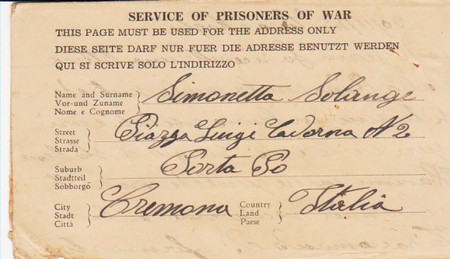 SERVICE OF PRISONERS OF WAR
THIS PAGE MUST BE USED FOR THE ADDRESS ONLY
DIESE SEITE DARF NUR FUER DIE ADRESSE BENUTZT WERDEN
QUI SI SCRIVE SOLO L'INDIRIZZO
Name and Surname
Vor-und Zuname
Nome e Cognome
Simonetta Solange
Street
Strasse
Strada
Piazza Luigi Caverna N 2
Suburb
Stadtteil
Sobborgo
Porta Po
City
Stadt
Città
Cremona
Country
Land
Paese
Italia